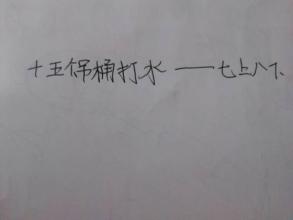 十五吊桶打水——七上八下